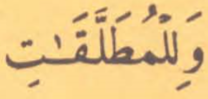 وَلِلْمُطَلَّقَـٰتِ